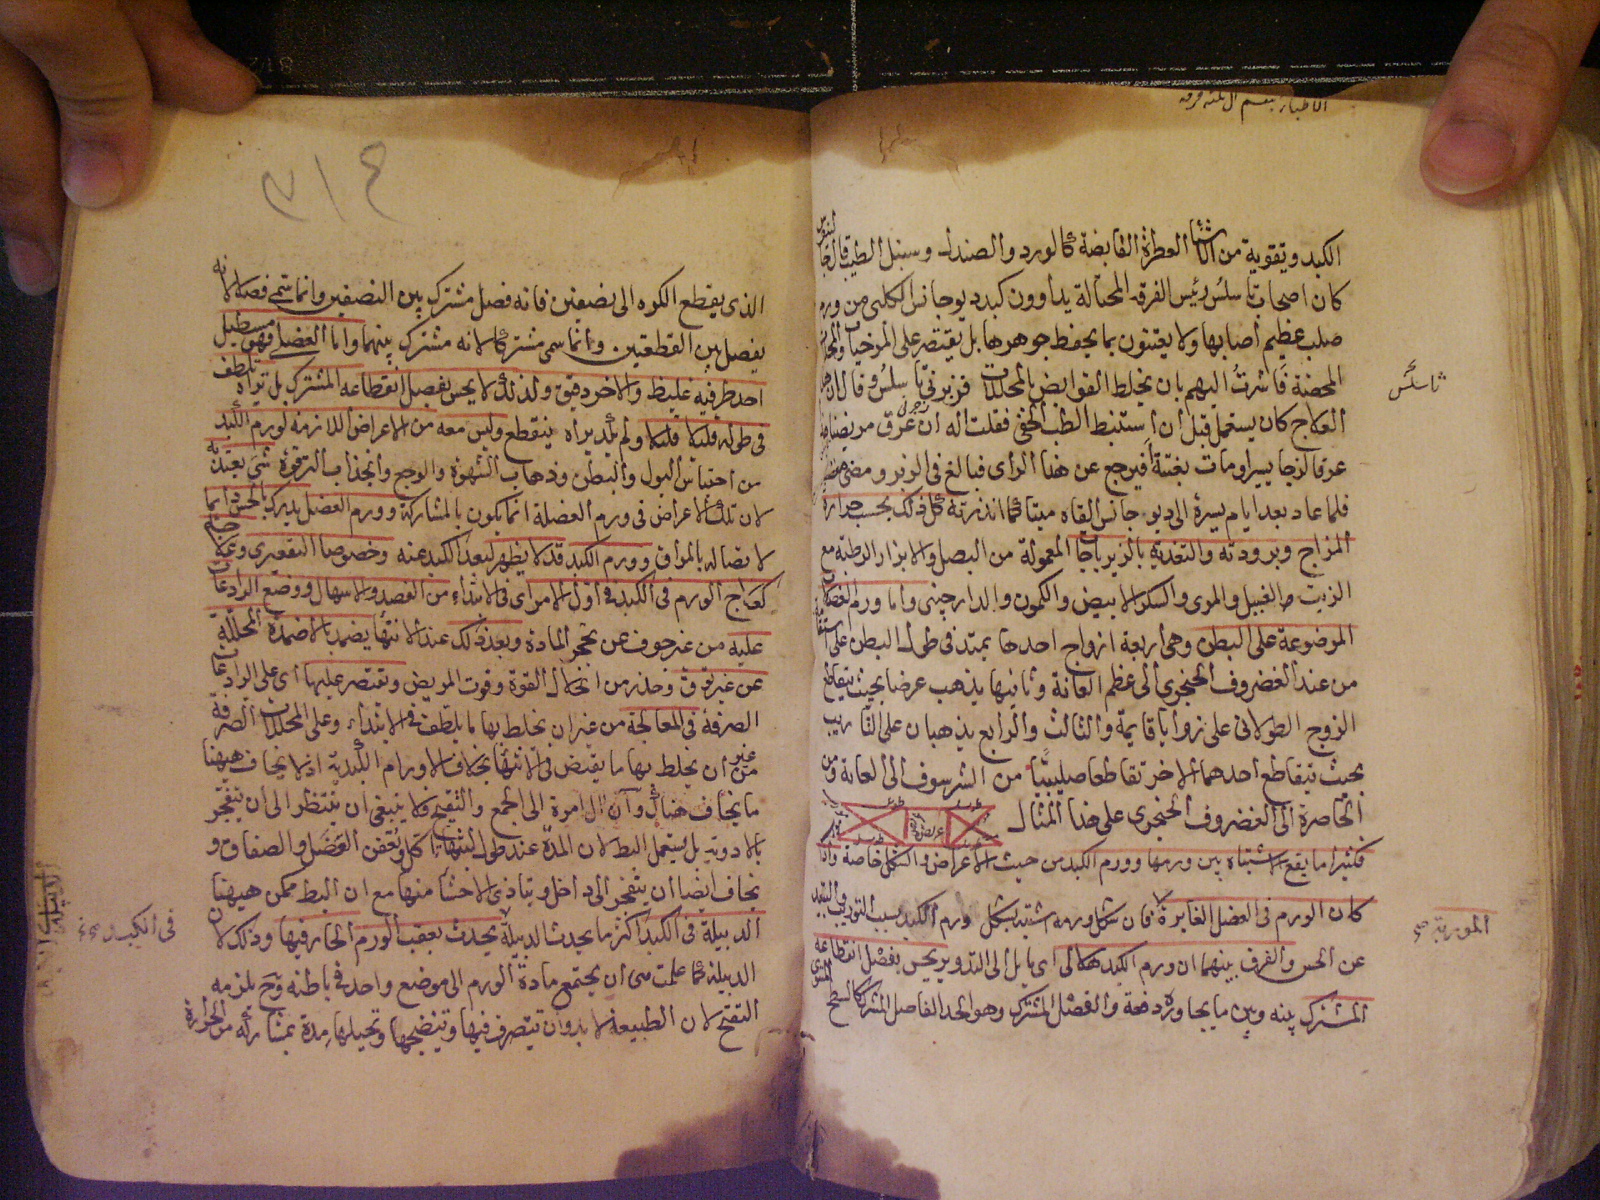 الاطباء بعم
الكبد وتقوية من الاشياء العطرة القابضة كالورد والصندل وسنبل الطيب قال
كان اصحاب ثاسلس رئيس الفرقة المحتالة يداوون كبد ديوجانس الكلبى من ورم
صلب عظيم أصابها ولا يعتنون بما يحفظ جوهرها بل يقتصر على المرخيات
المحضة فاشرت اليهم بان يخلط القوابض بالمحللات فزبرنى ثاسلس وقال ان هذا
العلاج كان يستعمل قبل أن استنبط الطب الخفى فقلت له أن عرق مريضنا
عرقا لزجا يسيرا ومات بغتة أفيرجع عن هذا الرأى فبالغ فى الزبر ومضى
فلما عاد بعد ايام يسيرة الى ديوجانس القاه ميتا كما انذرته كل ذلك بحسب حرارة
المزاج وبرودته والتغذية بالزيرباجا المعمولة من البصل والابزار الرطبة مع
الزيت المغسول والمرى والسكر الابيض والكمون والدارچينى واما ورم العضلات
الموضوعة على البطن وهى أربعة ازواج احدها يمتد فى طول البطن على
من عند الغضروف الحنجرى الى عظم العانة وثانيها يذهب عرضا بحيث يقاطع
الزوج الطولانى على زوايا قايمة والثالث والرابع يذهبان على التاريب
بحيث يتقاطع احدهما الاخر تقاطعا صليبيا من الشرسوف الى العانة ومن
الخاصرة الى الغضروف الحنجرى على هذا المثال
فكثيرا ما يقع الاشتباه بين ورمها وورم الكبد من حيث الاعراض والشكل خاصة واذا
كان الورم فى العضل الغايرة فان شكل ورمه اشبه بشكل ورم الكبد بسبب التوريب والبعد
عن الحس والفرق بينهما ان ورم الكبد هلالى اى مايل الى التدوير يحس بفصل انقطاعه
المشترك بينه وبين ما يجاوره دفعة والفصل المشترك وهو الحد الفاصل المشترك كالسطح
ثاسلس
الموربة
الذى يقطع الكوه الى نصفين فانه فصل مشترك بين النصفين وانما سمى فصلا لانه
يفصل بين القطعتين وانما سمى مشتركا لانه مشترك بينهما واما العضلى فهو مستطيل
احد طرفيه غليظ والاخر دقيق ولذلك لا يحس بفصل انقطاعه المشترك بل تراه يلطف
فى طوله قليلا قليلا ولم تكد يراه ينقطع وليس معه من الاعراض اللازمة لورم الكبد
من احتباس البول والبطن وذهاب الشهوة والوجع وانجذاب الترقوة شئ يعتد به
لان تلك الاعراض فى ورم العضلة انما يكون بالمشاركة وورم العضل يدرك بالحس دايما
لاتصاله بالمراق وورم الكبد قد لا يظهر لبعد الكبد عنه وخصوصا التقعيرى وعلاجه
كعلاج الورم فى الكبد فى أول الامر أى فى الابتداء من الفصد والاسهال ووضع الرادعات
عليه من غير خوف عن تحجر المادة وبعد ذلك عند الانتهاء يضمد بالاضمدة المحللة
عن غير توق وحذر من انحلال القوة وفوت المريض وتقتصر عليها أى على الرادعات
الصرفة فى المعالجة من غير ان يخلط بها ما يلطف فى الابتداء وعلى المحللات الصرفة
من غير ان يخلط بها ما يقبض فى الانتهاء بخلاف الاورام الكبدية اذ لا يخاف هيهنا
ما يخاف هناك وآن آل امره الى الجمع والتقيح فلا ينبغى ان ينتظر الى أن ينفجر
بالادوية بل يستعمل البط لان المدة عند طول لبثها تاكل وتعفن العضل والصفاق و
يخاف ايضا أن ينفجر الى داخل ويتاذى الاحشا منها مع ان البط ممكن هيهنا
الدبيلة فى الكبد اكثر ما يحدث الدبيلة يحدث بعقب الورم الحار فيها وذلك لان
الدبيلة كما علمت هى ان يجتمع مادة الورم الى موضع واحد فى باطنه وح يلزمه
التقيح لان الطبيعة لا بد وان تتصرف فيها وتنضجها وتحيلها مدة بمشاركة من الحرارة